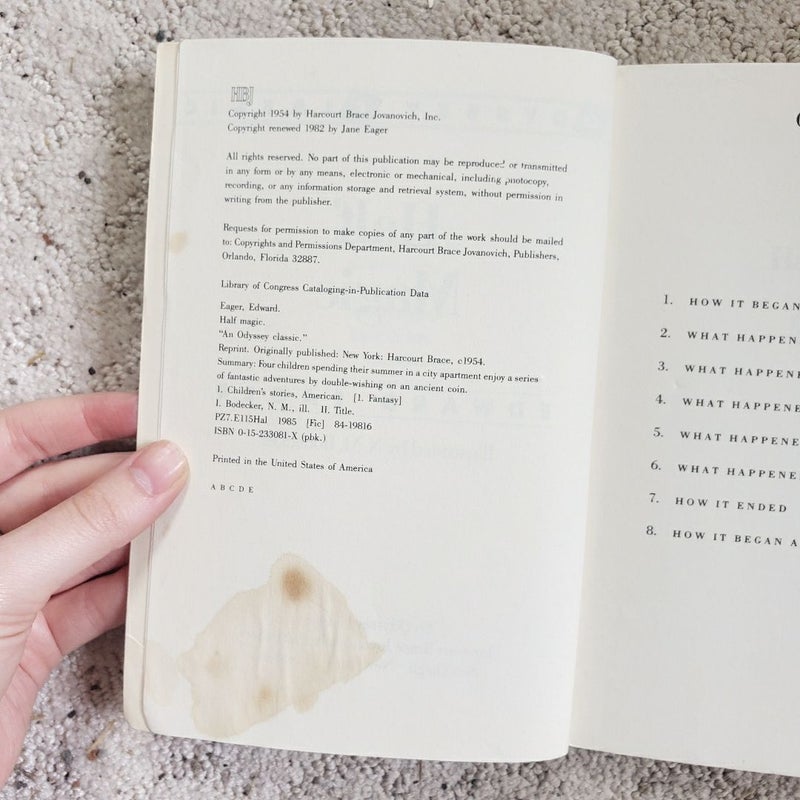 HBJ
Copyright 1954 by Harcourt Brace Jovanovich, Inc.
Copyright renewed 1982 by Jane Eager
All rights reserved. No part of this publication may be reproduced or transmitted
in any form or by any means, electronic or mechanical, including photocopy,
recording, or any information storage and retrieval system, without permission in
writing from the publisher.
Requests for permission to make copies of any part of the work should be mailed
to: Copyrights and Permissions Department, Harcourt Brace Jovanovich, Publishers,
Orlando, Florida 32887.
Library of Congress Cataloging-in-Publication Data
Eager, Edward.
Half magic.
"An Odyssey classic."
Reprint. Originally published: New York: Harcourt Brace, c1954.
Summary: Four children spending their summer in a city apartment enjoy a series
of fantastic adventures by double-wishing on an ancient coin.
1. Children's stories, American. [1. Fantasy]
I. Bodecker, N. M., ill. II. Title.
PZ7.E115Hal 1985 [Fic] 84-19816
ISBN 0-15-233081-X (pbk.)
Printed in the United States of America
A B C D E
1. HOW IT BEGAN
2. WHAT HAPPEN
3. WHAT HAPPENE
4. WHAT HAPPENE
5. WHAT HAPPENE
6. WHAT HAPPENE
7. HOW IT ENDED
8. HOW IT BEGAN A